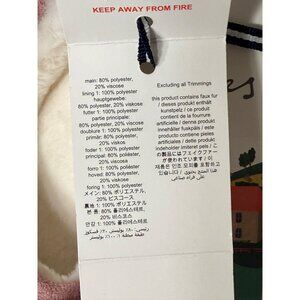 KEEP AWAY FROM FIRE
main: 80% polyester,
20% viscose
lining 1: 100% polyester
hauptgewebe:
80% polyester, 20% viskose
futter 1: 100% polyester
partie principale:
80% polyester, 20% viscose
doublure 1: 100% polyester
primær: 80% polyester,
20% viskos
foder 1: 100% polyester
principal: 80% poliestere,
20%
forro 1: 100% poliestere
hoved: 80% polyester,
20% viskose
foring 1: 100% polyester
メイン: 80% ポリエステル,
20% ビスコース
裏地 1: 100% ポリエステル
본 체: 80% 폴리에스테르,
20% 비스코스
안감 1: 100% 폴리에스테르
Excluding all Trimmings
this product contains faux fur
/ dieses produkt enthält
kunstpelz / ce produit
contient de la fourrure
artificielle / denna produkt
innehåller fuskpäls / este
produto contém pelo
artificial / dette produkt
indeholder imiteret pels / こ
の製品にはフェイクファー
が使われています / 이
제품은 인조 모피를 포함하고
있습니다 /
es